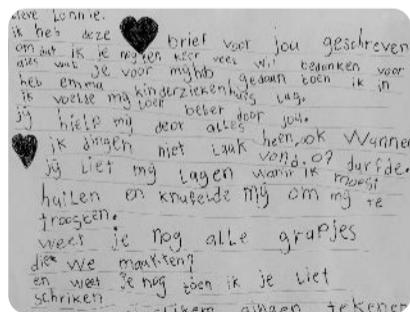 lieve Lonnie.
ik heb deze brief voor jou geschreven
om dat ik je nog een keer veel wil bedanken voor
alles wat je voor mij heb gedaan toen ik in
het emma kinderziekenhuis lag.
ik voelse mij toen beter door jou.
jij hielp mij door alles
ik dingen niet leuk heen, ook wanneer
vond. of durfde.
jij liet mij lagen wanr ik moest
huilen en knufelde mij om mij te
troosten.
weet je nog alle grapjes
die we maakten?
en weet je nog toen ik je liet
schriken
gingen tekenen